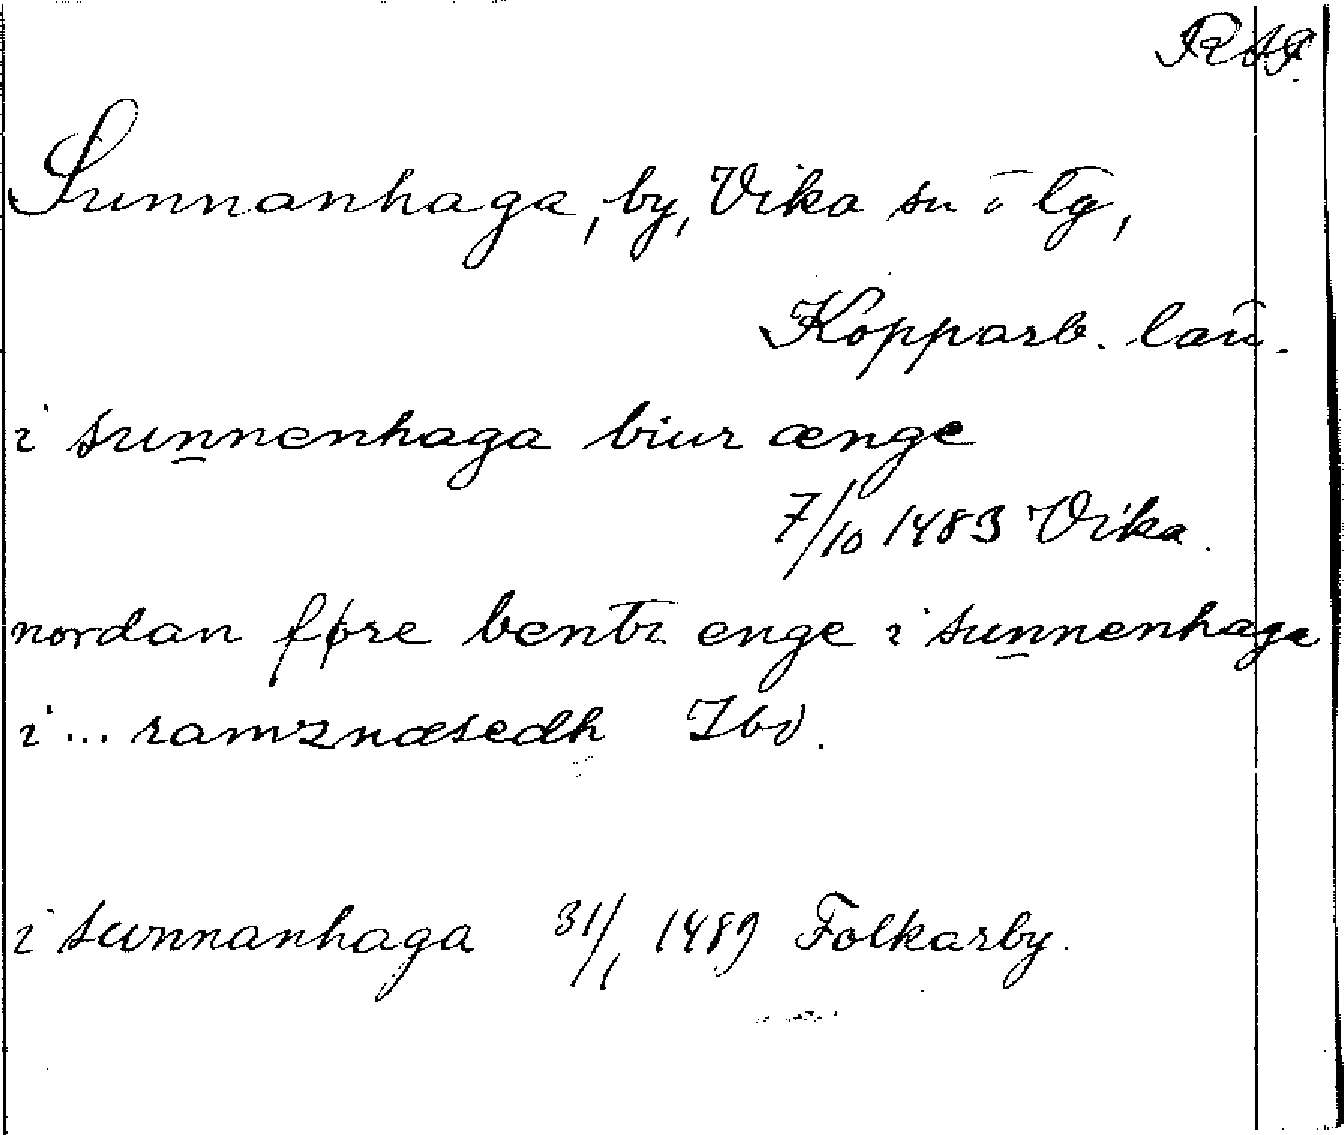 RAP.
Sunnanhaga, by, Vika sn o lg,
Kopparb. län.
i sunnenhaga biur ænge
7/10 1483 Vika.
nordan føre bentz enge i sunnenhaga
i ... ramznæsedh Ibd.
i sunnanhaga 31/1 1489 Folkarby.